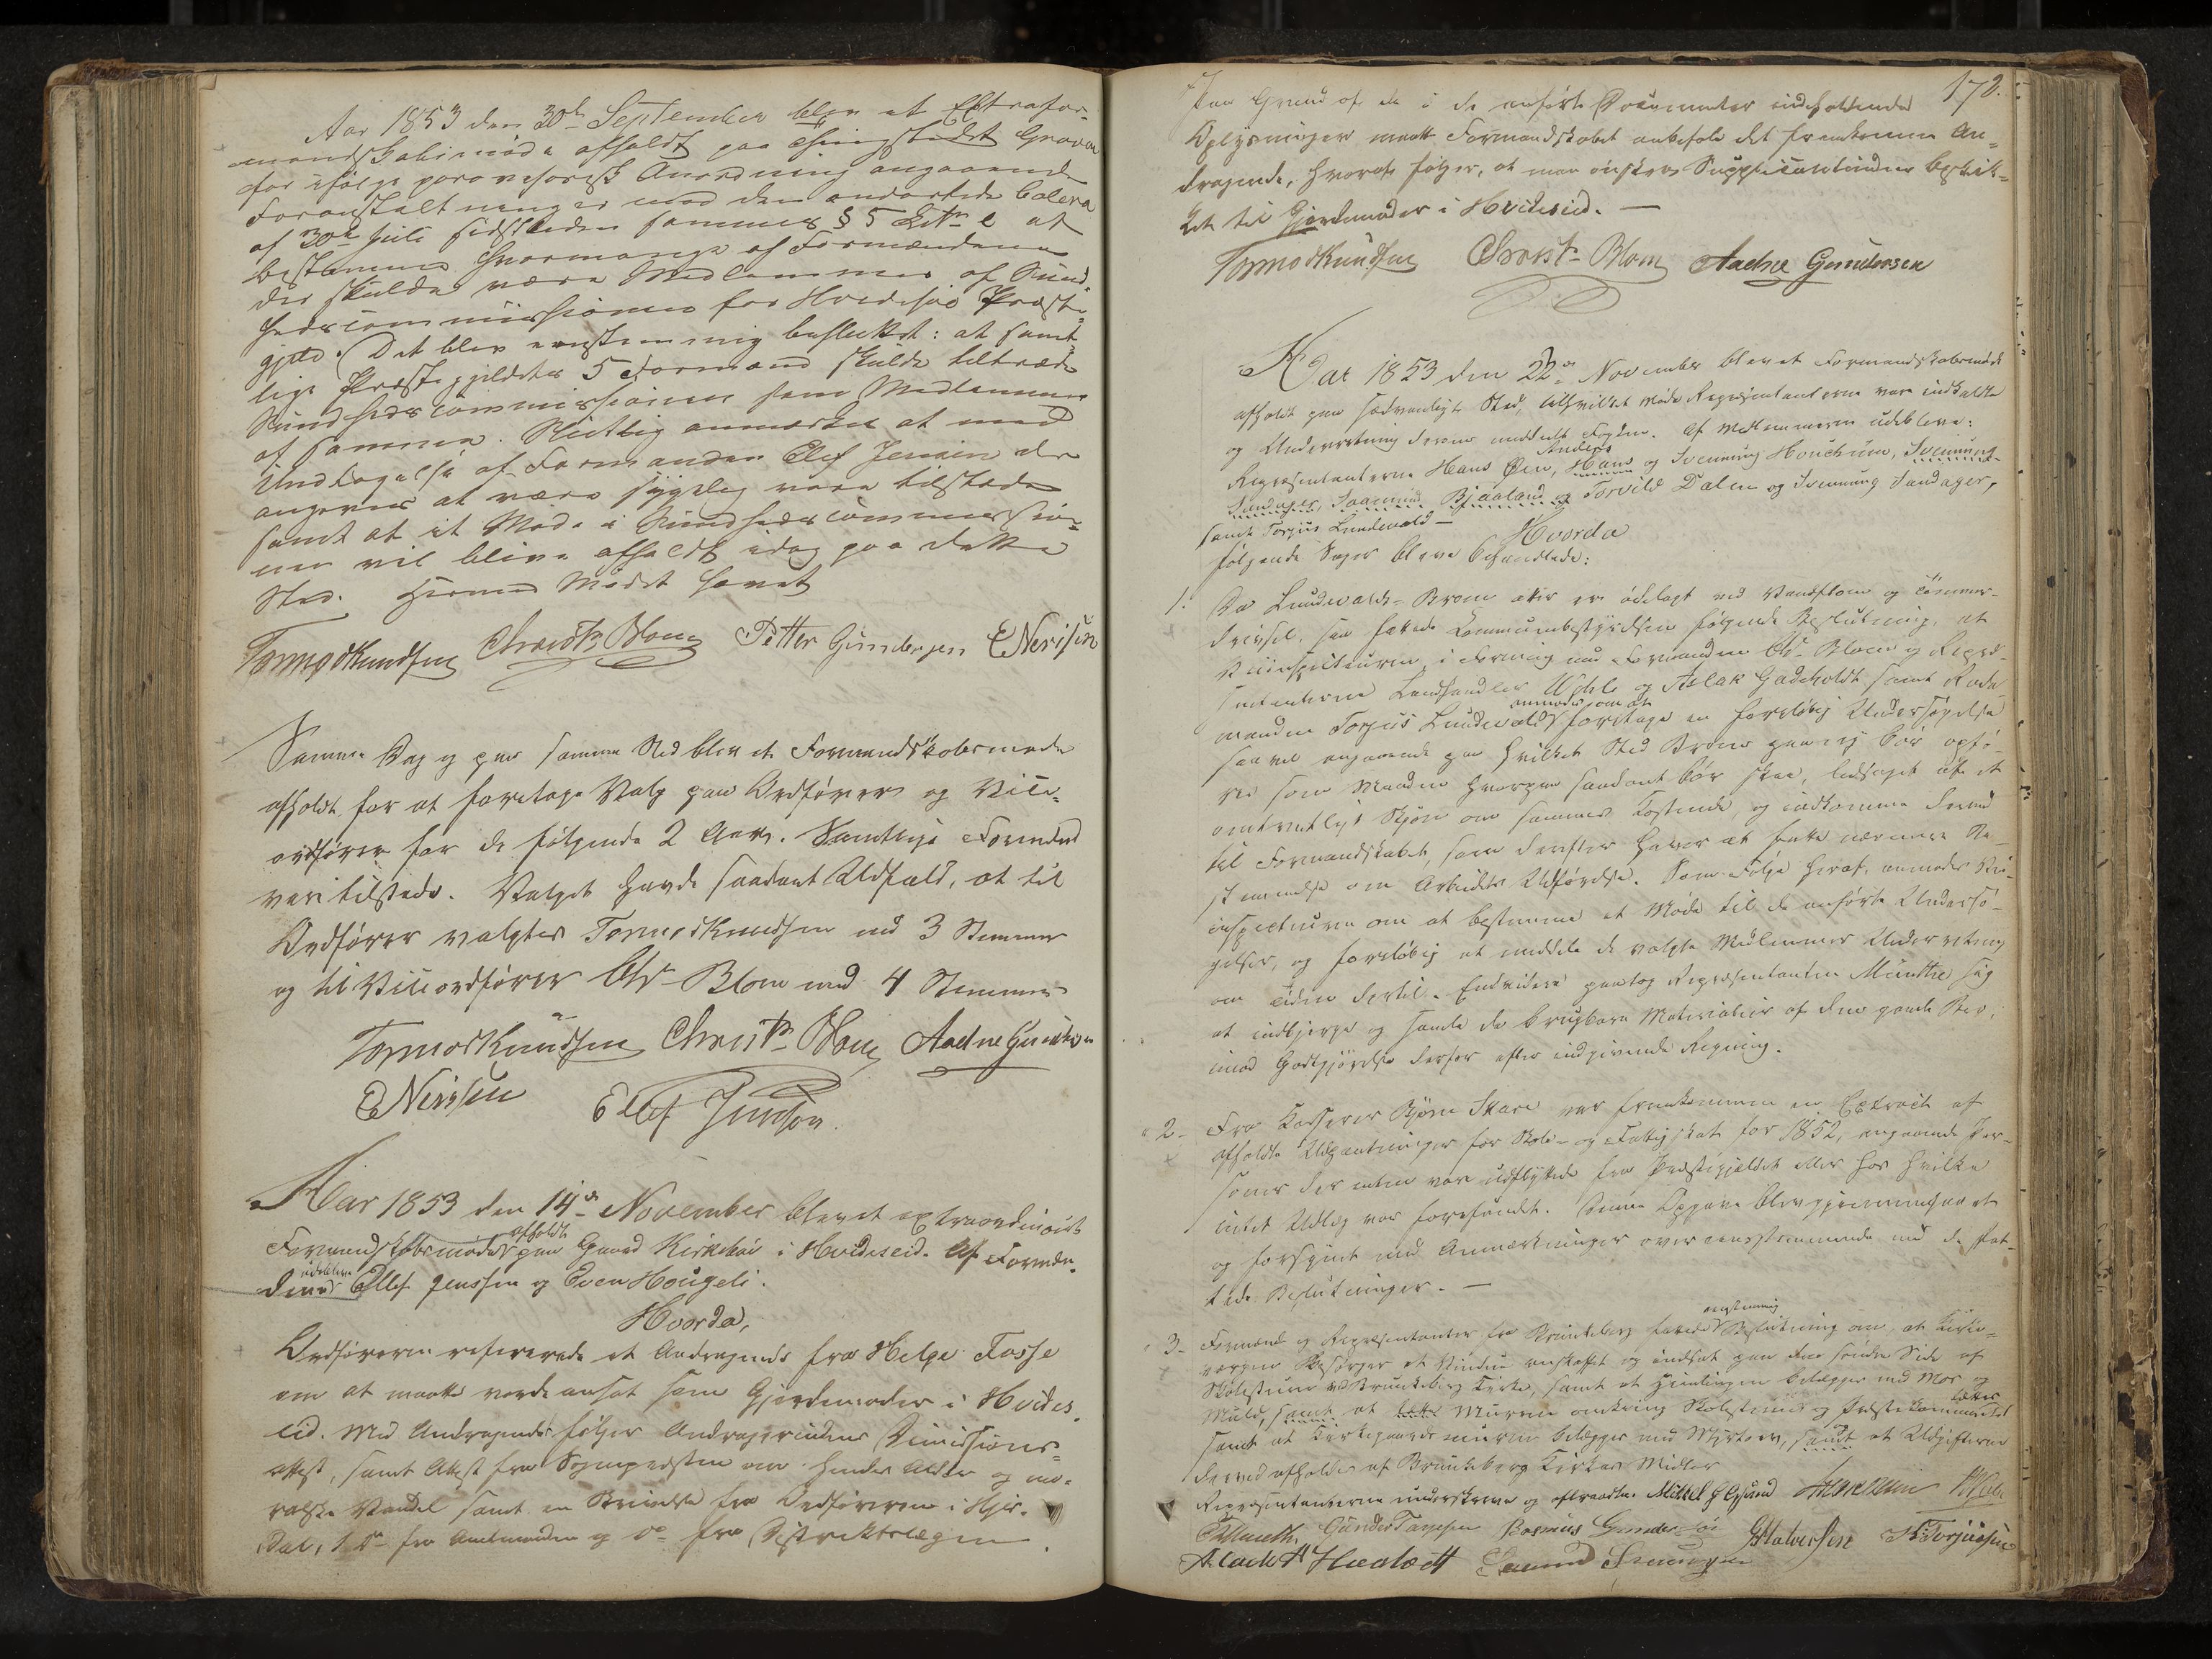 Aar 1853 den 30te September blev et Extrafor-
mandskabsmøde afholdt paa Thingstedet Graver
for ifølge provisorisk Anordning angaaende
Foranstaltninger mod den anartede Colera
af 30te Juli sidstleden sammes § 5 Litr. e at
bestemme hvormange af Formændene
der skulde være Medlemmer af Sund-
hedscommissionen for Hvideseid Præste-
gjeld. Det blev eenstemmig besluttet: at samt-
lige Præstegjeldets 5 Formænd skulde tiltræde
Sundhedscommissionen som Medlemmer
af samme. Sluttelig anmærkes at med
Undtagelse af Formanden Ellef Jensen der
angaves at være sygelig vare tilstede
samt at et Møde i Sundhedscommissio-
nen vil blive afholdt idag paa dette
Sted. Hermed Mødet hævet
Tormod Knudsen Christn Blom Petter Gundersen E Nerisen
Samme Dag og paa samme Sted blev et Formandskabsmøde
afholdt for at foretage Valg paa Ordfører og Vice-
ordfører for de følgende 2 Aar. Samtlige Formænd
vare tilstede. Valget havde saadant Udfald, at til
Ordfører valgtes Tormod Knudsen med 3 Stemmer
og til Viceordfører Chr Blom med 4 Stemmer
Tormod Knudsen Christn Blom Aadne Gundersen
E Nerisen Ellef Jensson.
Aar 1853 den 14de November blev et extraordinairt
afholdt
Formandskabsmøde paa Gaard Kirkebøe i Hvideseid. Af Formæn-
udebleve
dene Ellef Jenssen og Even Hougeli.
Hvorda,
Ordføreren refererede et Andragende fra Helge Fosse
om at maatte vorde ansat som Gjordemoder i Hvides-
eid. Med Andragendet følger Andragerindens Dimissions-
attest, samt Attest fra Sognepresten om hendes Alder og mo-
ralske Vandel samt en Skrivelse fra Ordføreren i Hjer-
dal, 1 do fra Amtmanden og do fra Distriktslægen.
172.
Paa Grund af de i de anførte Documenter indeholdende
Oplysninger maatte Formandskabet anbefale det fremkomne An-
dragende, hvoraf følger, at man ønsker Supplicantinden beskik-
ket til Gjordemoder i Hvideseid. —
Tormod Knudsen Christn Blom Aadne Gundersen
Aar 1853 den 22de November blev et Formandskabsmøde
afholdt paa sædvanligt Sted, tilhvilket Møde Repræsentanterne var indkaldte
og Underretning derom meddelt Fogden. Af Medlemmerne udebleve:
Anders
Repræsentanterne Hans Øen, Hans og Svenning Houchum, Svenning
Sandager, Saamund Bjaaland og Torvild Dalen og Svenning Sandager,
samt Torjus Lundevald —
Hvorda
følgende Sager bleve behandlede:
1. Da Lundevalds-Broen atter er ødelagt ved Vandflom og Tømmer-
drivsel, saa fattede Communebestyrelsen følgende Beslutning, at
Veiinspecteuren i Forening med Formanden Chr. Blom og Repræ-
sentanterne Landhandler Wehle og Aslak Gadeholdt samt Rode-
anmodes om at
manden Torjus Lundevald foretage en foreløbig Undersøgelse
saavel angaaende paa hvilket Sted Broen paany bør opfø-
res som Maaden hvorpaa saadant bør skee, ledsaget af et
omtrentligt Skjøn om sammes Kostende, og indkomme dermed
til Formandskabet, som derefter haver at fatte nærmere Be-
stemmelse om Arbeidets Udførelse. Som Følge heraf, anmodes Vei-
inspecteuren om at bestemme et Møde til de anførte Undersø-
gelser, og foreløbig at meddele de valgte Medlemmer Underretning
om Tiden dertil. Endvidere paatog Repræsentanten Münthe sig
at indbjerge og samle de brugbare Materialier af den gamle Bro,
imod Godtgjørelse derfor efter indgivende Regning.
2- Fra Kasserer Bjørn Skare var fremkommen en Extract af
afholdte Udpantninger for Skole- og Fattigskat for 1852, angaaende Per-
soner der enten var udflyttede fra Præstegjeldet eller hos hvilke
intet Udlæg var forefundet. Denne Opgave blev gjennemgaaet
og forsynet med Anmærkninger overeensstemmende med de fat-
tede Beslutninger. —
eenstemmig
3- Formænd og Repræsentanter fra Brunkeberg fattede Beslutning om, at Kirke-
værgen besørger et Vindue anskaffet og indsat paa den søndre Side af
Skolestuen ved Brunkeberg Kirke, samt at Himlingen belægges med Mos og
tættes
Muld, samt at tætte Murene omkring Skolestuen og Præstekammerset
samt at Kirkegaardsmuren belægges med Myrtorv, samt at Udgifterne
derved afholdes af Brunkeberg Kirkes Midler
Repræsentanterne underskreve og aftraadte. Mikkel
Münthe Gunder Tarjesen Rasmus Gundersøn G Halvorsen Torjussen